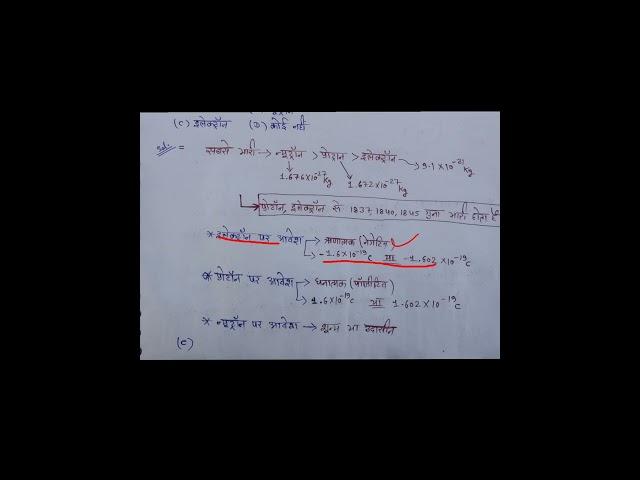 (C) इलेक्ट्रॉन (D) कोई नहीं
Sol:- =
सबसे भारी → न्यूट्रॉन > प्रोटॉन > इलेक्ट्रॉन → 9.1 × 10⁻³¹ kg
1.676×10⁻²⁷ kg 1.672×10⁻²⁷ kg
प्रोटॉन, इलेक्ट्रॉन से 1837, 1840, 1845 गुना भारी होता है
* इलेक्ट्रॉन पर आवेश → ऋणात्मक (नेगेटिव)
→ -1.6×10⁻¹⁹C या -1.602 ×10⁻¹⁹C
* प्रोटॉन पर आवेश → धनात्मक (पॉजीटिव)
→ 1.6×10⁻¹⁹C या 1.602×10⁻¹⁹C
* न्यूट्रॉन पर आवेश → शून्य या उदासीन
(C)